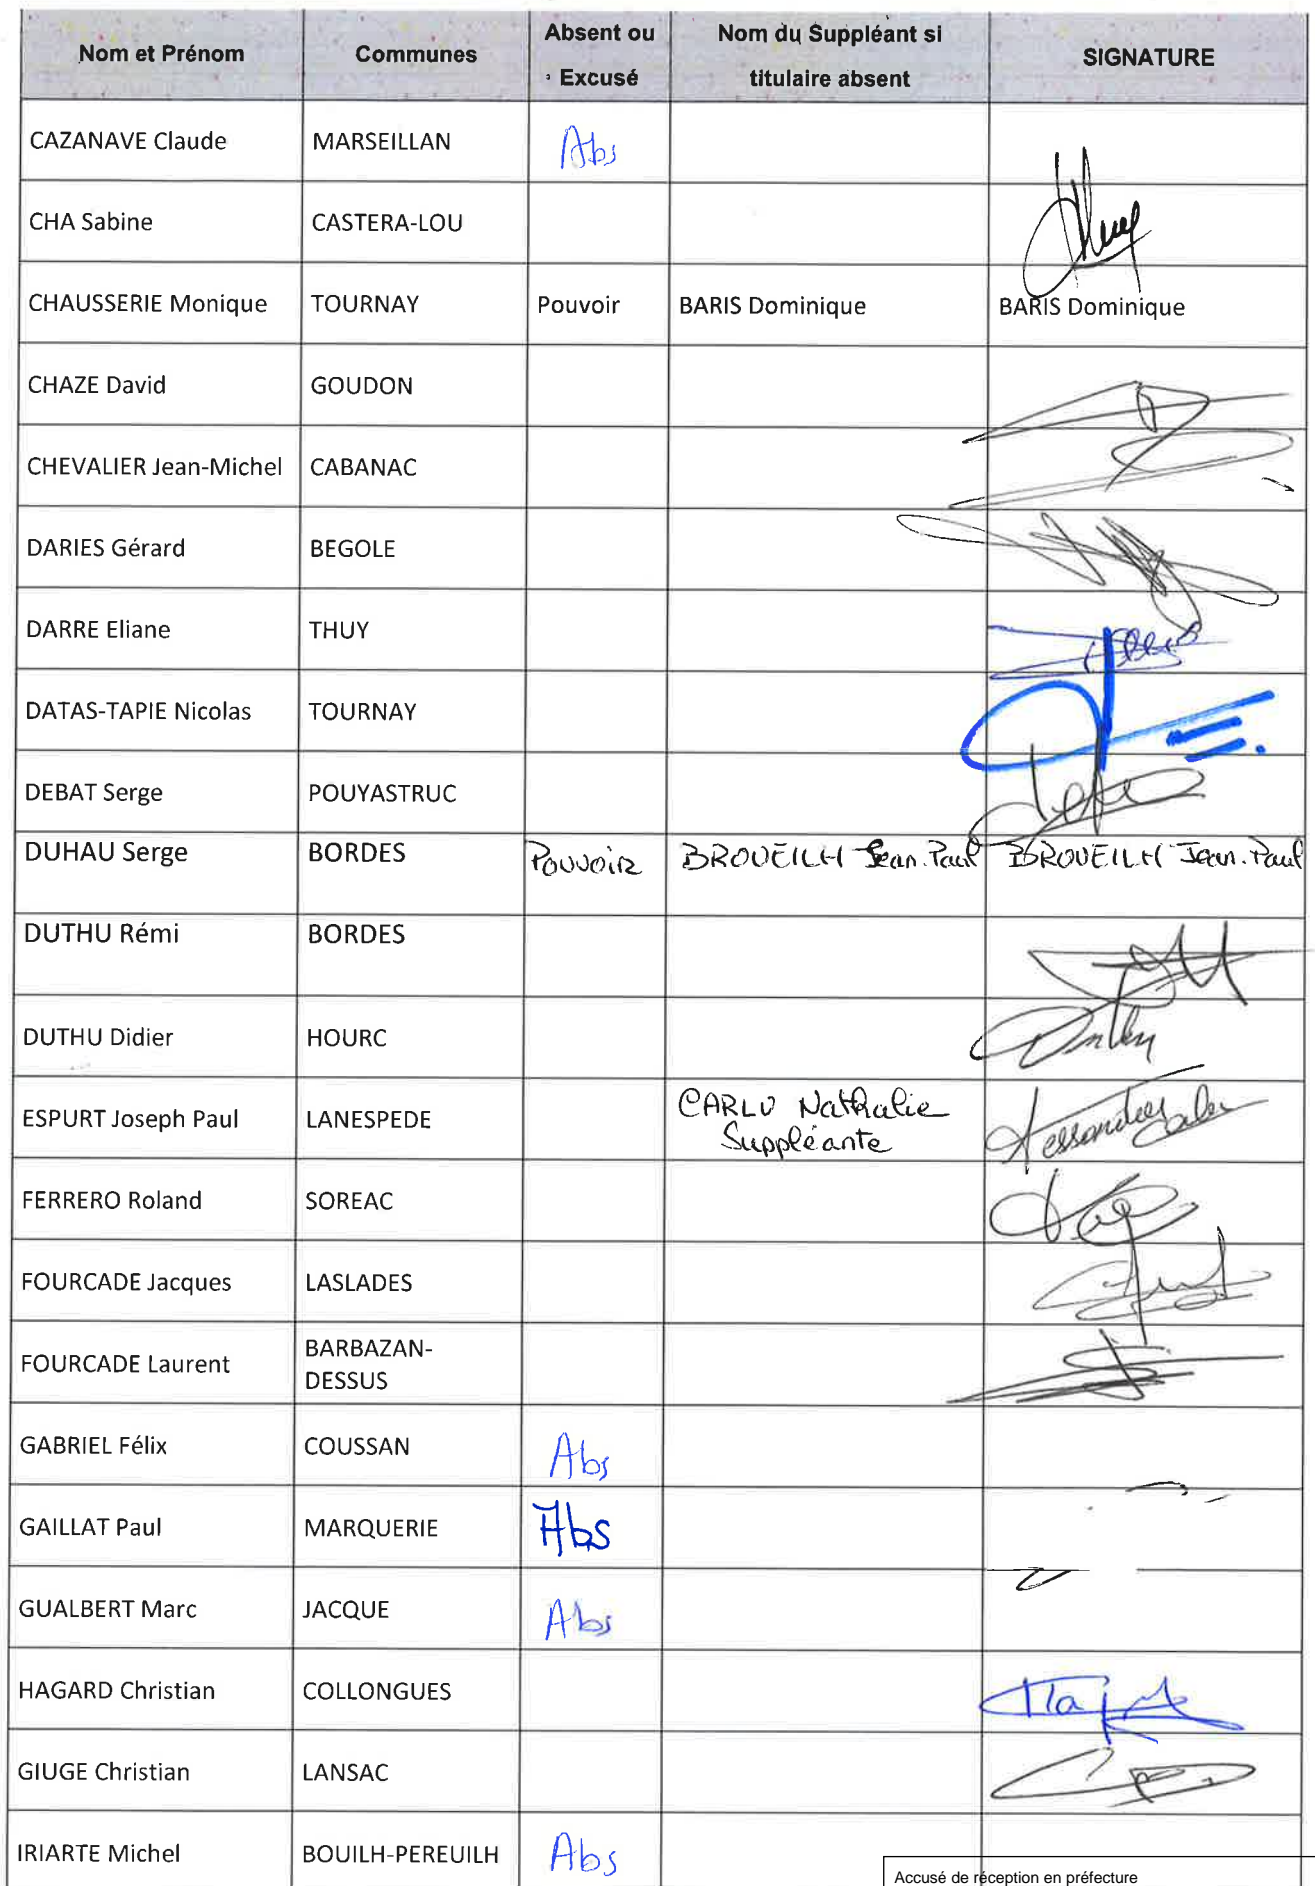 Nom et Prénom Communes Absent ou Excusé Nom du Suppléant si titulaire absent SIGNATURE
CAZANAVE Claude MARSEILLAN Abs
CHA Sabine CASTERA-LOU
CHAUSSERIE Monique TOURNAY Pouvoir BARIS Dominique BARIS Dominique
CHAZE David GOUDON
CHEVALIER Jean-Michel CABANAC
DARIES Gérard BEGOLE
DARRE Eliane THUY
DATAS-TAPIE Nicolas TOURNAY
DEBAT Serge POUYASTRUC
DUHAU Serge BORDES Pouvoir BROUEILH Jean.Paul BROUEILH Jean.Paul
DUTHU Rémi BORDES
DUTHU Didier HOURC
ESPURT Joseph Paul LANESPEDE CARLU Nathalie Suppléante
FERRERO Roland SOREAC
FOURCADE Jacques LASLADES
FOURCADE Laurent BARBAZAN-
DESSUS
GABRIEL Félix COUSSAN Abs
GAILLAT Paul MARQUERIE Abs
GUALBERT Marc JACQUE Abs
HAGARD Christian COLLONGUES
GIUGE Christian LANSAC
IRIARTE Michel BOUILH-PEREUILH Abs
Accusé de réception en préfecture